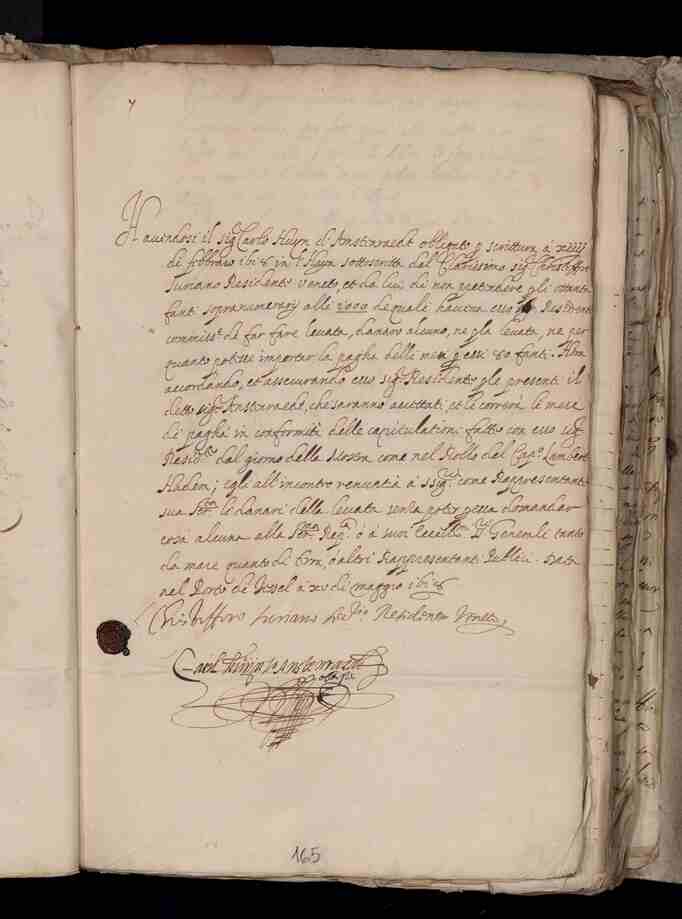 Havendosi il sig.r Carlo Huyn d'Anstenraedt obligato p scrittura à xxiiii
di febbraro 1618 in l'Haya sottoscritta dal Clarissimo sig.r Christofforo
Suriano Residente Veneto, et da lui di non pretendere p gli ottanta
fanti sopranumerarij alli 2000 de quali haveva esso Residente
commiss.e de far fare levata, danaro alcuno, ne p la levata, ne per
quanto potesse importar la pagha delli mesi p essi 80 fanti. Hora
accordando, et assecurando esso sig.r Residente p le presenti il
detto sig.r Anstenraedt, che saranno accettati, et le correrà le mese
di pagha in conformità delle capitulationi fatte con esso sig.r
Resid.te dal giorno della Mostra come nel Rollo del Cap.o Lambert
Hadem; egli all'incontro renuntia à come Rappresentante
sua Ser.tà le danari della levata senza poter domandar
cosa alcuna alla Ser.ma Rep.ca ò à suoi Eccell.mi Generali tanto
da mare quanto di terra, ò altri Rappresentanti Publici. Data
nel Porto de Tessel à xv di Maggio 1618
Christofforo Suriano Residente Veneto
Carel Huyn van Anstenraedt
165